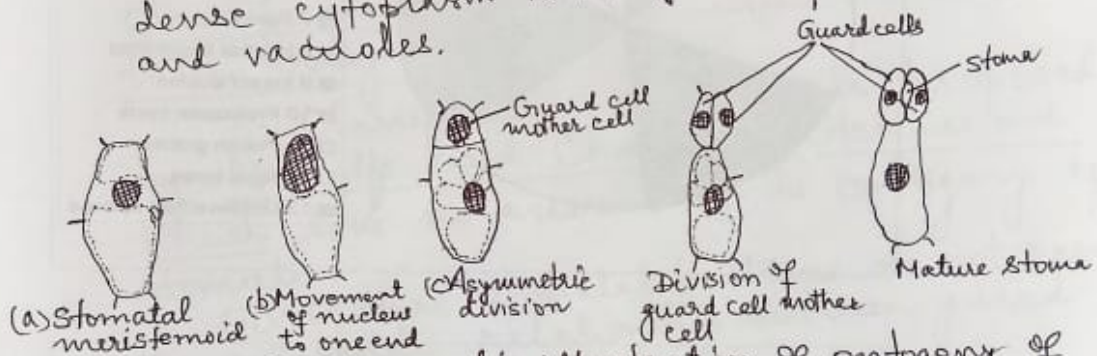 dense cytoplasm
and vacuoles.
Guard cells
Stoma
Guard cell
mother cell
(a) Stomatal
meristemoid
(b) Movement
of nucleus
to one end
(c) Asymmetric
division
Division of
guard cell mother
cell
Mature Stoma
of ontogeny of